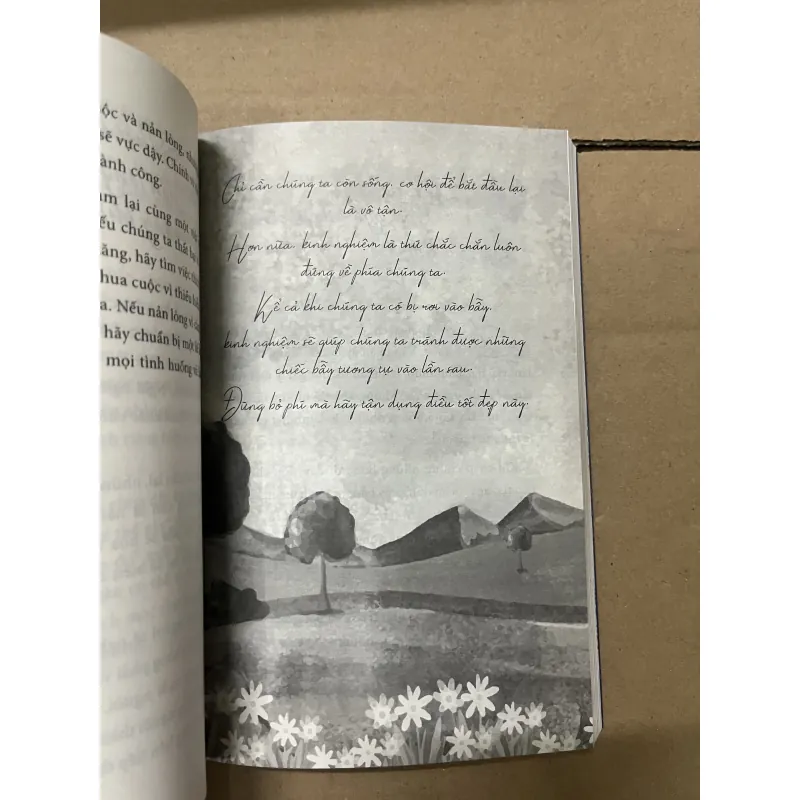 ộc và nản lòng,
sẽ vực dậy. Chính
ành công.
lại cùng một
ếu chúng ta thất bại
ăng, hãy tìm việc
hua cuộc vì thiếu
a. Nếu nản lòng vì
hãy chuẩn bị một
mọi tình huống
Chỉ cần chúng ta còn sống, cơ hội để bắt đầu lại
là vô tận.
Hơn nữa, kinh nghiệm là thứ chắc chắn luôn
đứng về phía chúng ta.
Kể cả khi chúng ta có bị rơi vào bẫy,
kinh nghiệm sẽ giúp chúng ta tránh được những
chiếc bẫy tương tự vào lần sau.
Đừng bỏ phí mà hãy tận dụng điều tốt đẹp này.